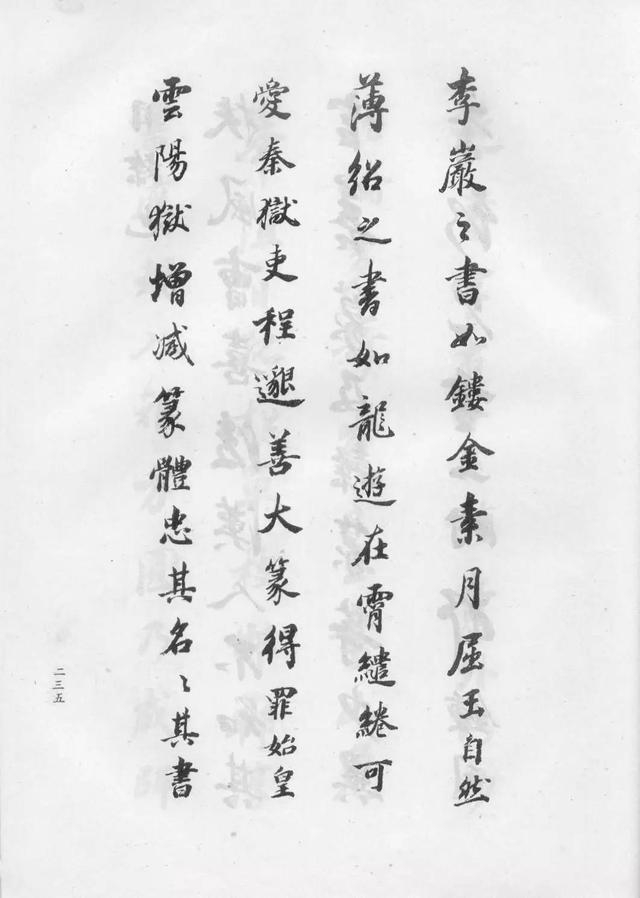 李巖之書如鏤金素月屈玉自然
薄紹之書如龍遊在霄繾綣可
愛秦獄吏程邈善大篆得罪始皇
雲陽獄增减篆體忠其名〻其書
二三五